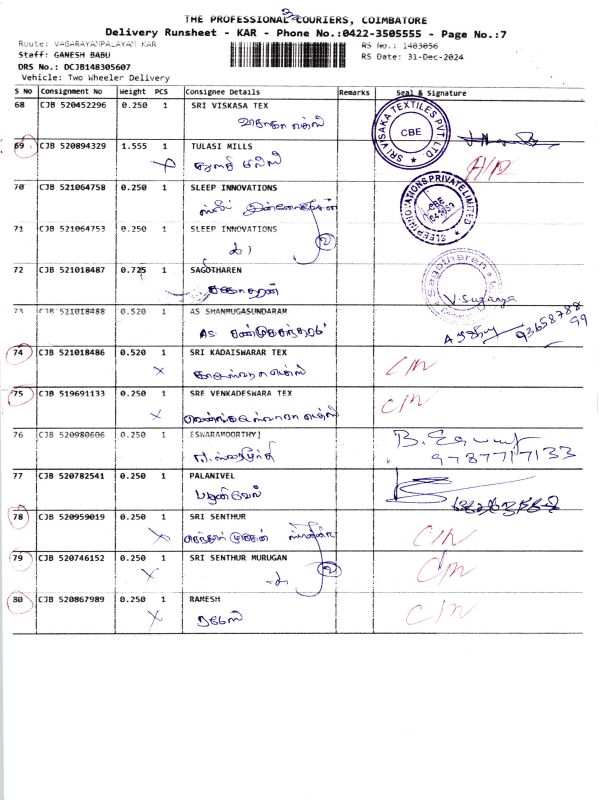 THE PROFESSIONAL COURIERS, COIMBATORE
Delivery Runsheet - KAR - Phone No.:0422-3505555 - Page No.:7
Route: VAGARAYAMPALAYAM KAR
RS No.: 1403056
Staff: GANESH BABU
RS Date: 31-Dec-2024
DRS No.: DCJB148305607
Vehicle: Two Wheeler Delivery
S No Consignment No Weight PCS Consignee Details Remarks Seal & Signature
68 CJB 520452296 0.250 1 SRI VISKASA TEX
SRI VISAKA TEXTILES PVT. LTD. CBE
69 CJB 520894329 1.555 1 TULASI MILLS
துளசி மில்ஸ்
70 CJB 521064758 0.250 1 SLEEP INNOVATIONS
SLEEP INNOVATIONS PRIVATE LIMITED CBE
71 CJB 521064753 0.250 1 SLEEP INNOVATIONS
72 CJB 521018487 0.725 1 SAGOTHAREN
சகோதரன்
Sagotharen
V. Suganya
73 CJB 521018488 0.520 1 AS SHANMUGASUNDARAM
AS சண்முகசுந்தரம்
74 CJB 521018486 0.520 1 SRI KADAISWARAR TEX
C/N
75 CJB 519691133 0.250 1 SRE VENKADESWARA TEX
C/N
76 CJB 520980606 0.250 1 ESWARAMOORTHY]
9787717133
77 CJB 520782541 0.250 1 PALANIVEL
பழனிவேல்
78 CJB 520959019 0.250 1 SRI SENTHUR
C/N
79 CJB 520746152 0.250 1 SRI SENTHUR MURUGAN
C/N
80 CJB 520867989 0.250 1 RAMESH
ரமேஸ்
C/N